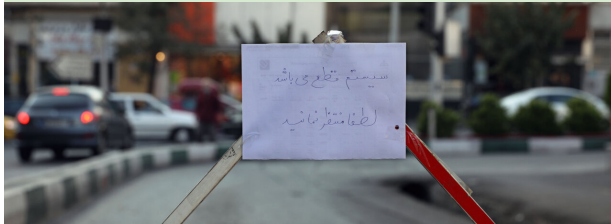 سیستم قطع می باشد
لطفا منتظر نمانید